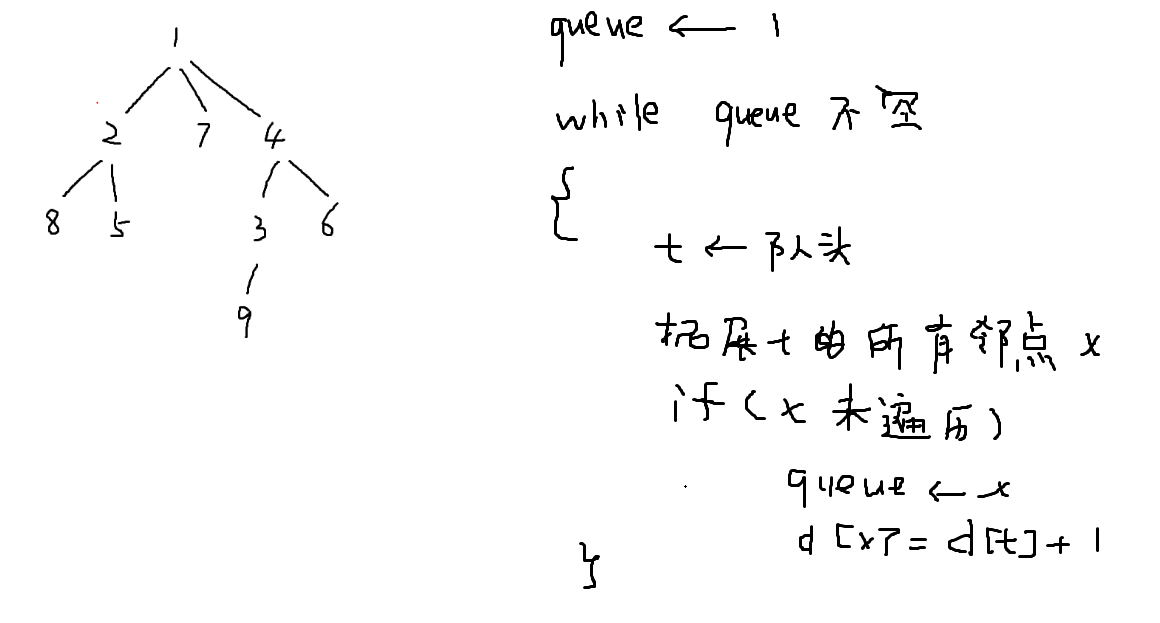 1
2 7 4
8 5 3 6
9
queue ← 1
while queue 不空
{
t ← 队头
拓展t的所有邻点 x
if (x 未遍历)
queue ← x
d[x]=d[t]+1
}